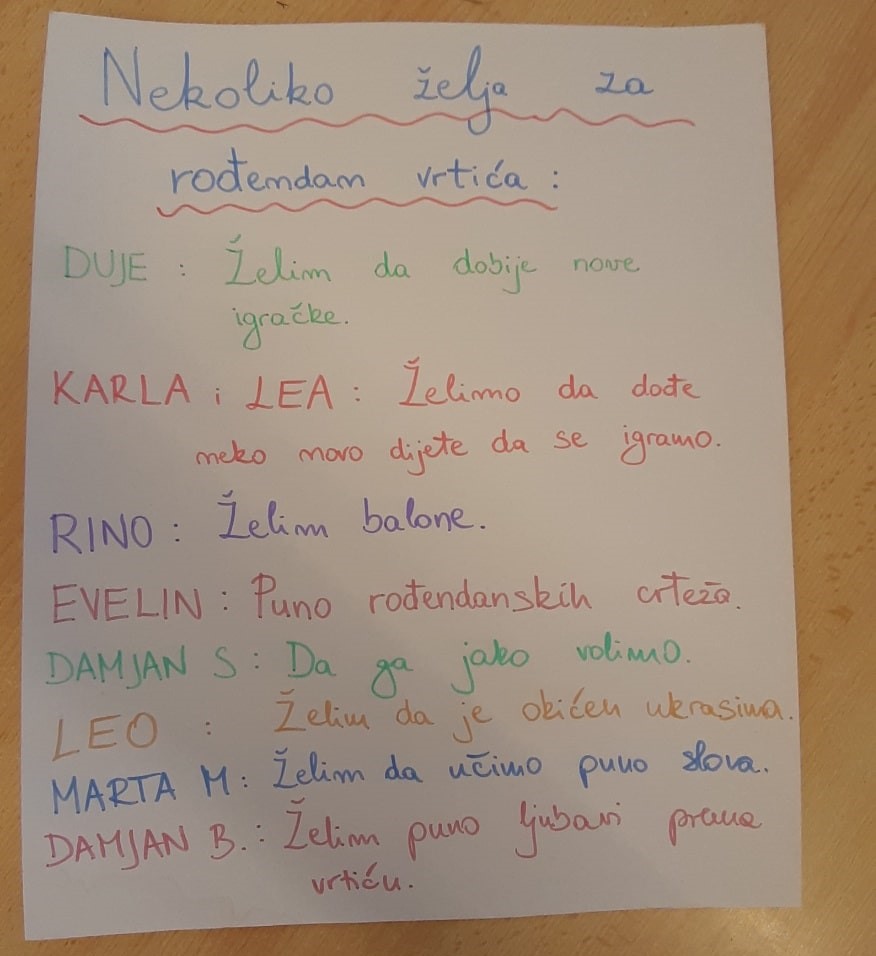 Nekoliko želja za
rođendan vrtića :
DUJE : Želim da dobije nove
igračke.
KARLA i LEA : Želimo da dođe
neko novo dijete da se igramo.
RINO : Želim balone.
EVELIN : Puno rođendanskih crteža.
DAMJAN S : Da ga jako volimo.
LEO : Želim da je okićen ukrasima.
MARTA M : Želim da učimo puno slova.
DAMJAN B. : Želim puno ljubavi prema
vrtiću.